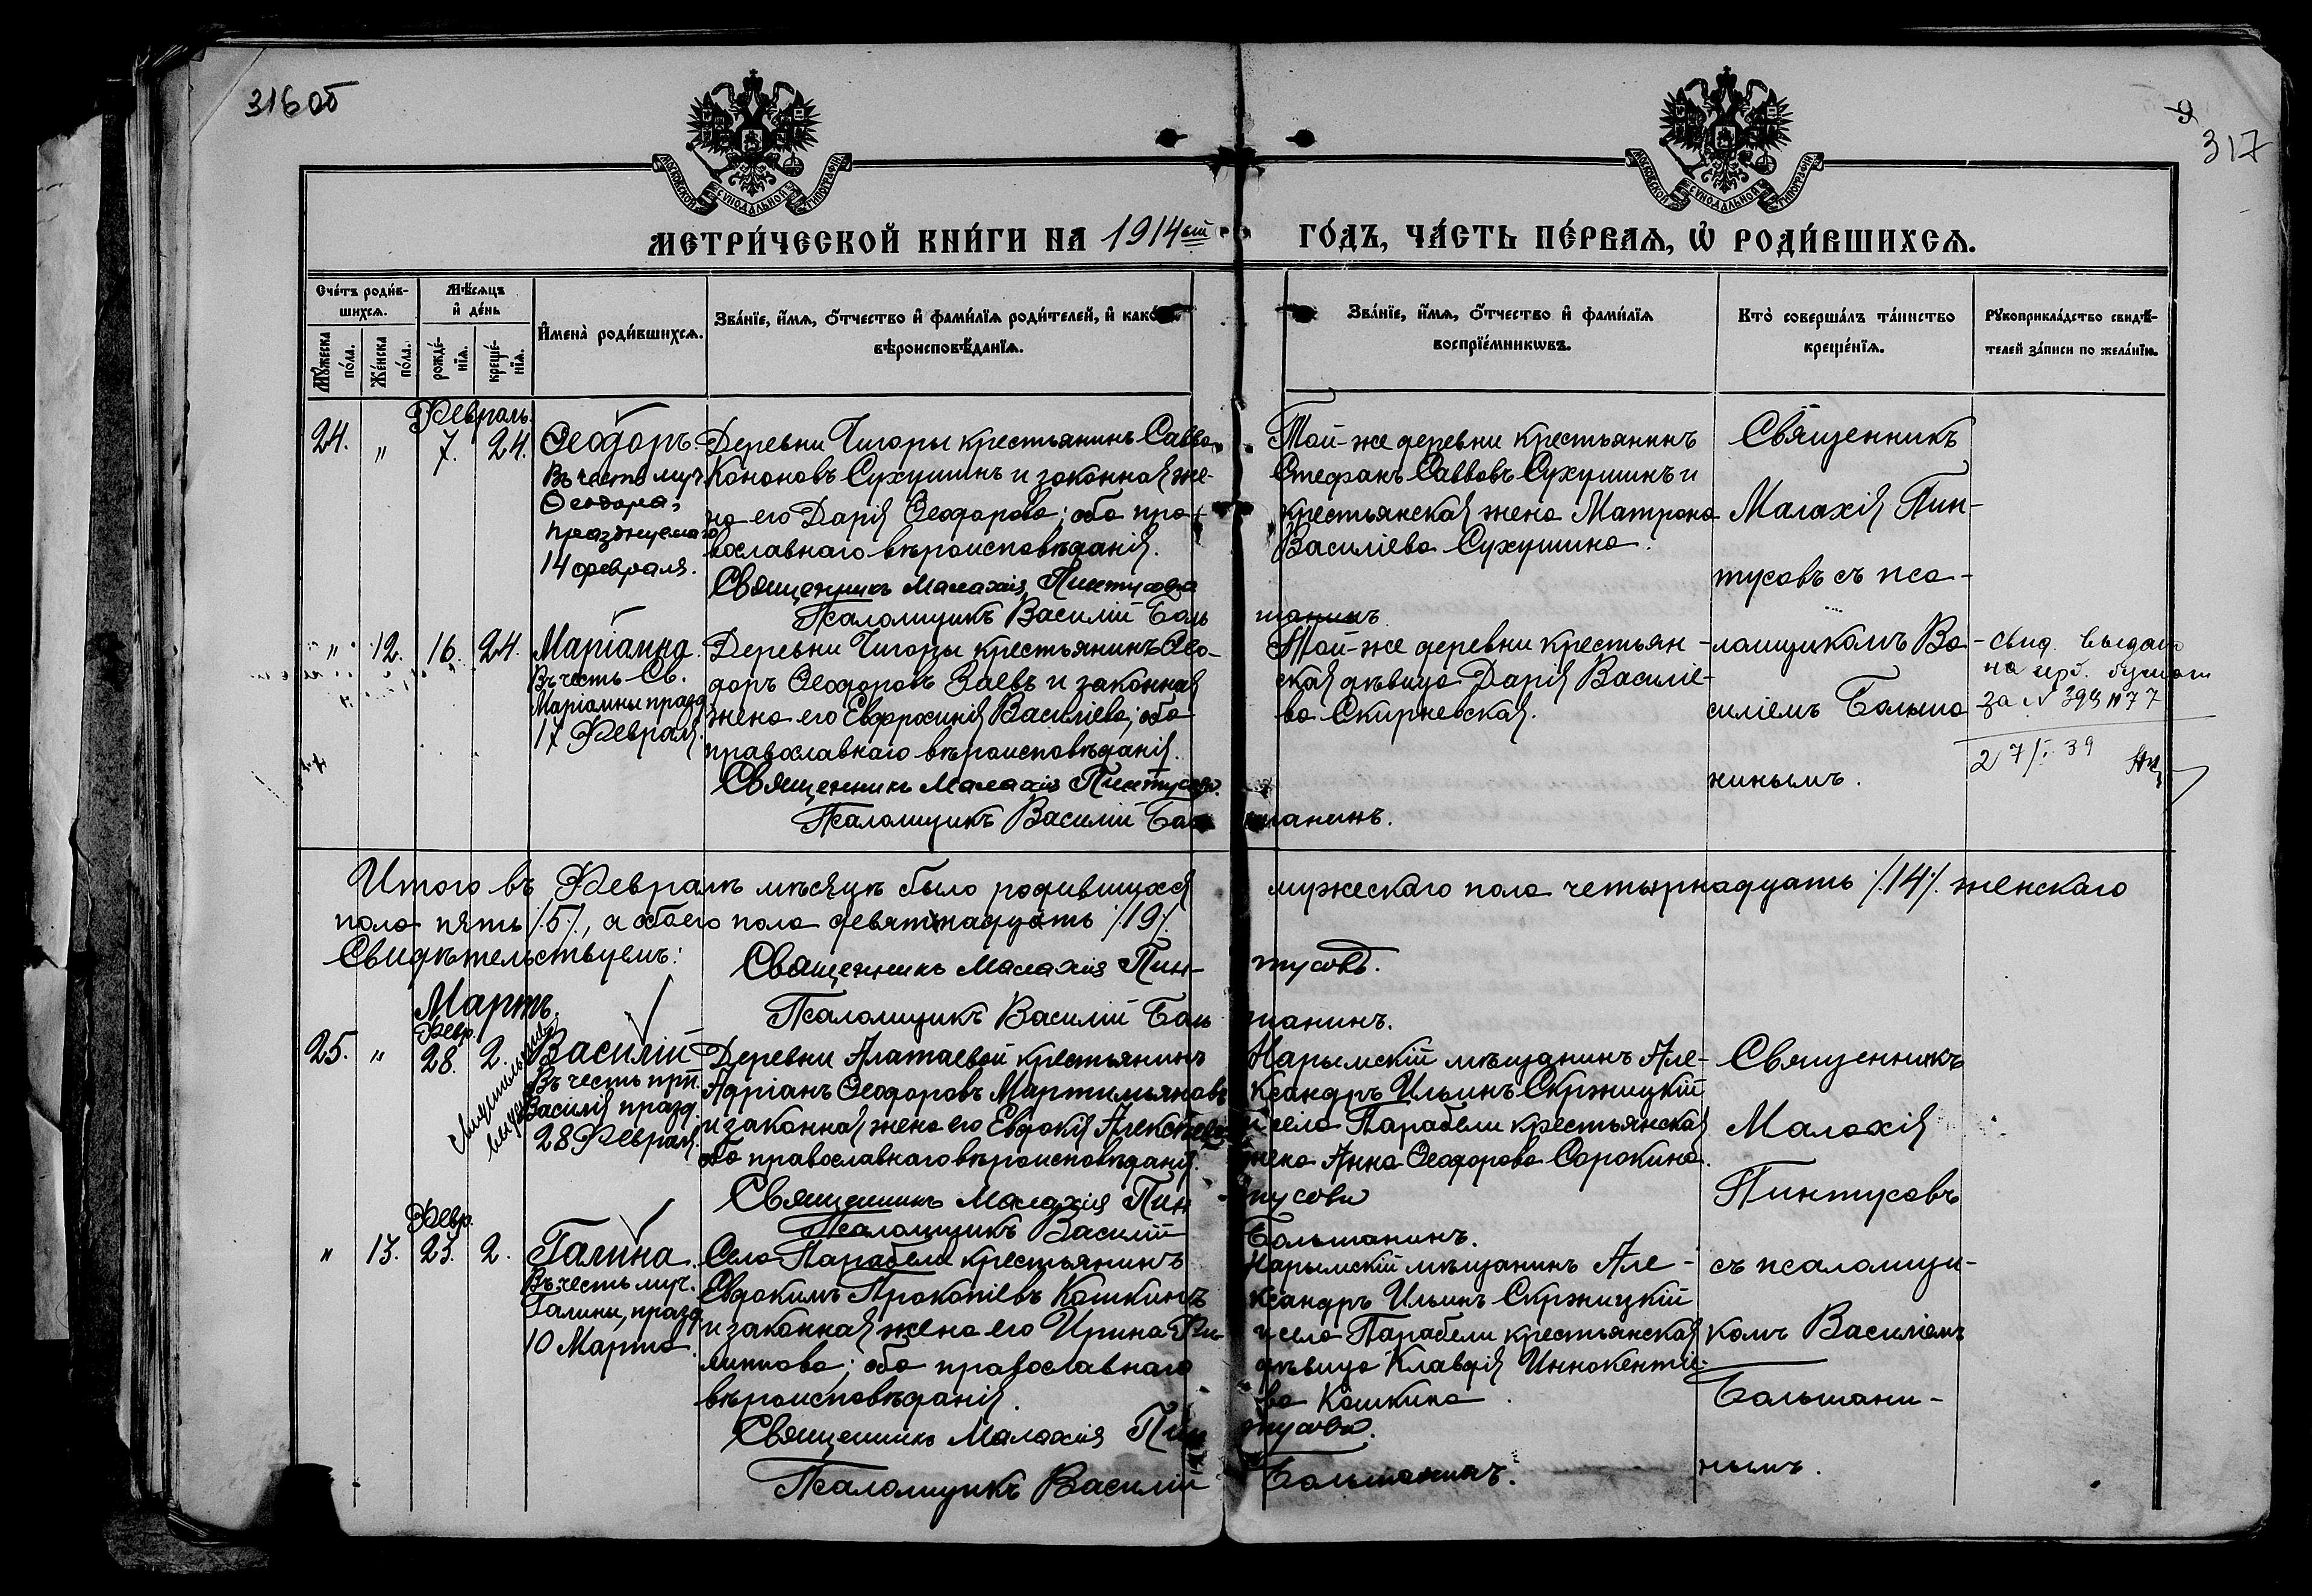 316 об
9
317
МОСКОВСКОЙ СѴНОДАЛЬНОЙ ТИПОГРАФІИ
МОСКОВСКОЙ СѴНОДАЛЬНОЙ ТИПОГРАФІИ
МЕТРИ́ЧЕСКОЙ КНИ́ГИ НА 1914ый
ГО́ДЪ, ЧА́СТЬ ПЕ́РВАѦ, Ѡ҆ РОДИ́ВШИХСѦ.
Сче́тъ роди́в-
шихсѧ.
Мꙋ́жеска по́ла.
Же́нска по́ла.
Мѣ́сѧцъ
и҆ де́нь
рожде́-нїѧ.
креще́-нїѧ.
И҆мена̀ роди́вшихсѧ.
Зва́нїе, и҆́мѧ, ѻ҆́тчество и҆ фами́лїѧ роди́телей, и҆ како́гѡ
вѣроисповѣ́данїѧ.
Зва́нїе, и҆́мѧ, ѻ҆́тчество и҆ фами́лїѧ
воспрїе́мникѡвъ.
Кто̀ соверша́лъ та́инство
креще́нїѧ.
Рꙋкоприкла́дство свидѣ́-
телей за́писи по жела́нїю.
Февраль.
24. " 7. 24.
Ѳеодоръ.
Въ честь муч.
Ѳеодора,
празднуемаго
14 февраля.
Деревни Чигоры крестьянинъ Савва
Кононовъ Сухушинъ и законная же-
на его Дарія Ѳеодорова; оба пра-
вославнаго вѣроисповѣданія.
Священникъ Малахія Пинтусовъ
Псаломщикъ Василій Боль
Той-же деревни крестьянинъ
Стефанъ Саввовъ Сухушинъ и
крестьянская жена Матрона
Василіева Сухушина.
шанинъ.
Священникъ
Малахія Пин-
тусовъ съ пса-
ломщикомъ Ва-
силіемъ Больша
нинымъ.
" 12. 16. 24.
Маріамна.
Въ честь Св.
Маріамны празд.
17 Февраля.
Деревни Чигоры крестьянинъ Ѳео-
доръ Ѳеодоровъ Заевъ и законная
жена его Евфросинія Василіева; оба
православнаго вѣроисповѣданія.
Священникъ Малахія Пинтусовъ.
Псаломщикъ Василій Боль
Той-же деревни крестьян-
ская дѣвица Дарія Василіе-
ва Скирневская.
шанинъ.
свид. выдано
на герб. бумаги
за №
27/I 39
Итого въ Февралѣ мѣсяцѣ было родившихся мужескаго пола четырнадцать /.14/. женскаго
пола пять /.5/., а обоего пола девятнадцать /.19/.
Свидѣтельствуемъ: Священникъ Малахія Пин- тусовъ.
Псаломщикъ Василій Боль шанинъ.
Мартъ.
Февр.
25. " 28. 2.
Свидѣтельство
выдано
Василій
Въ честь прп.
Василія празд.
28 Февраля.
Деревни Алатаевой крестьянинъ
Адріанъ Ѳеодоровъ Мартемьяновъ
и законная жена его Евдокія Алексѣева
оба православнаго вѣроисповѣданія.
Священникъ Малахія Пин
Псаломщикъ Василій
Нарымскій мѣщанинъ Але-
ксандръ Ильинъ Скржицкій
и села Парабели крестьянская
жена Анна Ѳеодорова Сорокина.
тусовъ
Большанинъ.
Священникъ
Малахія
Пинтусовъ
съ псаломщи-
комъ Василіемъ
Большани-
нымъ.
Февр.
" 13. 23. 2.
Галина.
Въ честь муч.
Галины, празд.
10 Марта.
Села Парабели крестьянинъ
Евдокимъ Прокопіевъ Кошкинъ
и законная жена его Ирина Фи-
липпова; оба православнаго
вѣроисповѣданія.
Священникъ Малахія Пин
Псаломщикъ Василій
Нарымскій мѣщанинъ Але-
ксандръ Ильинъ Скржицкій
и села Парабели крестьянская
дѣвица Клавдія Иннокентіе-
ва Кошкина.
тусовъ.
Большанинъ.